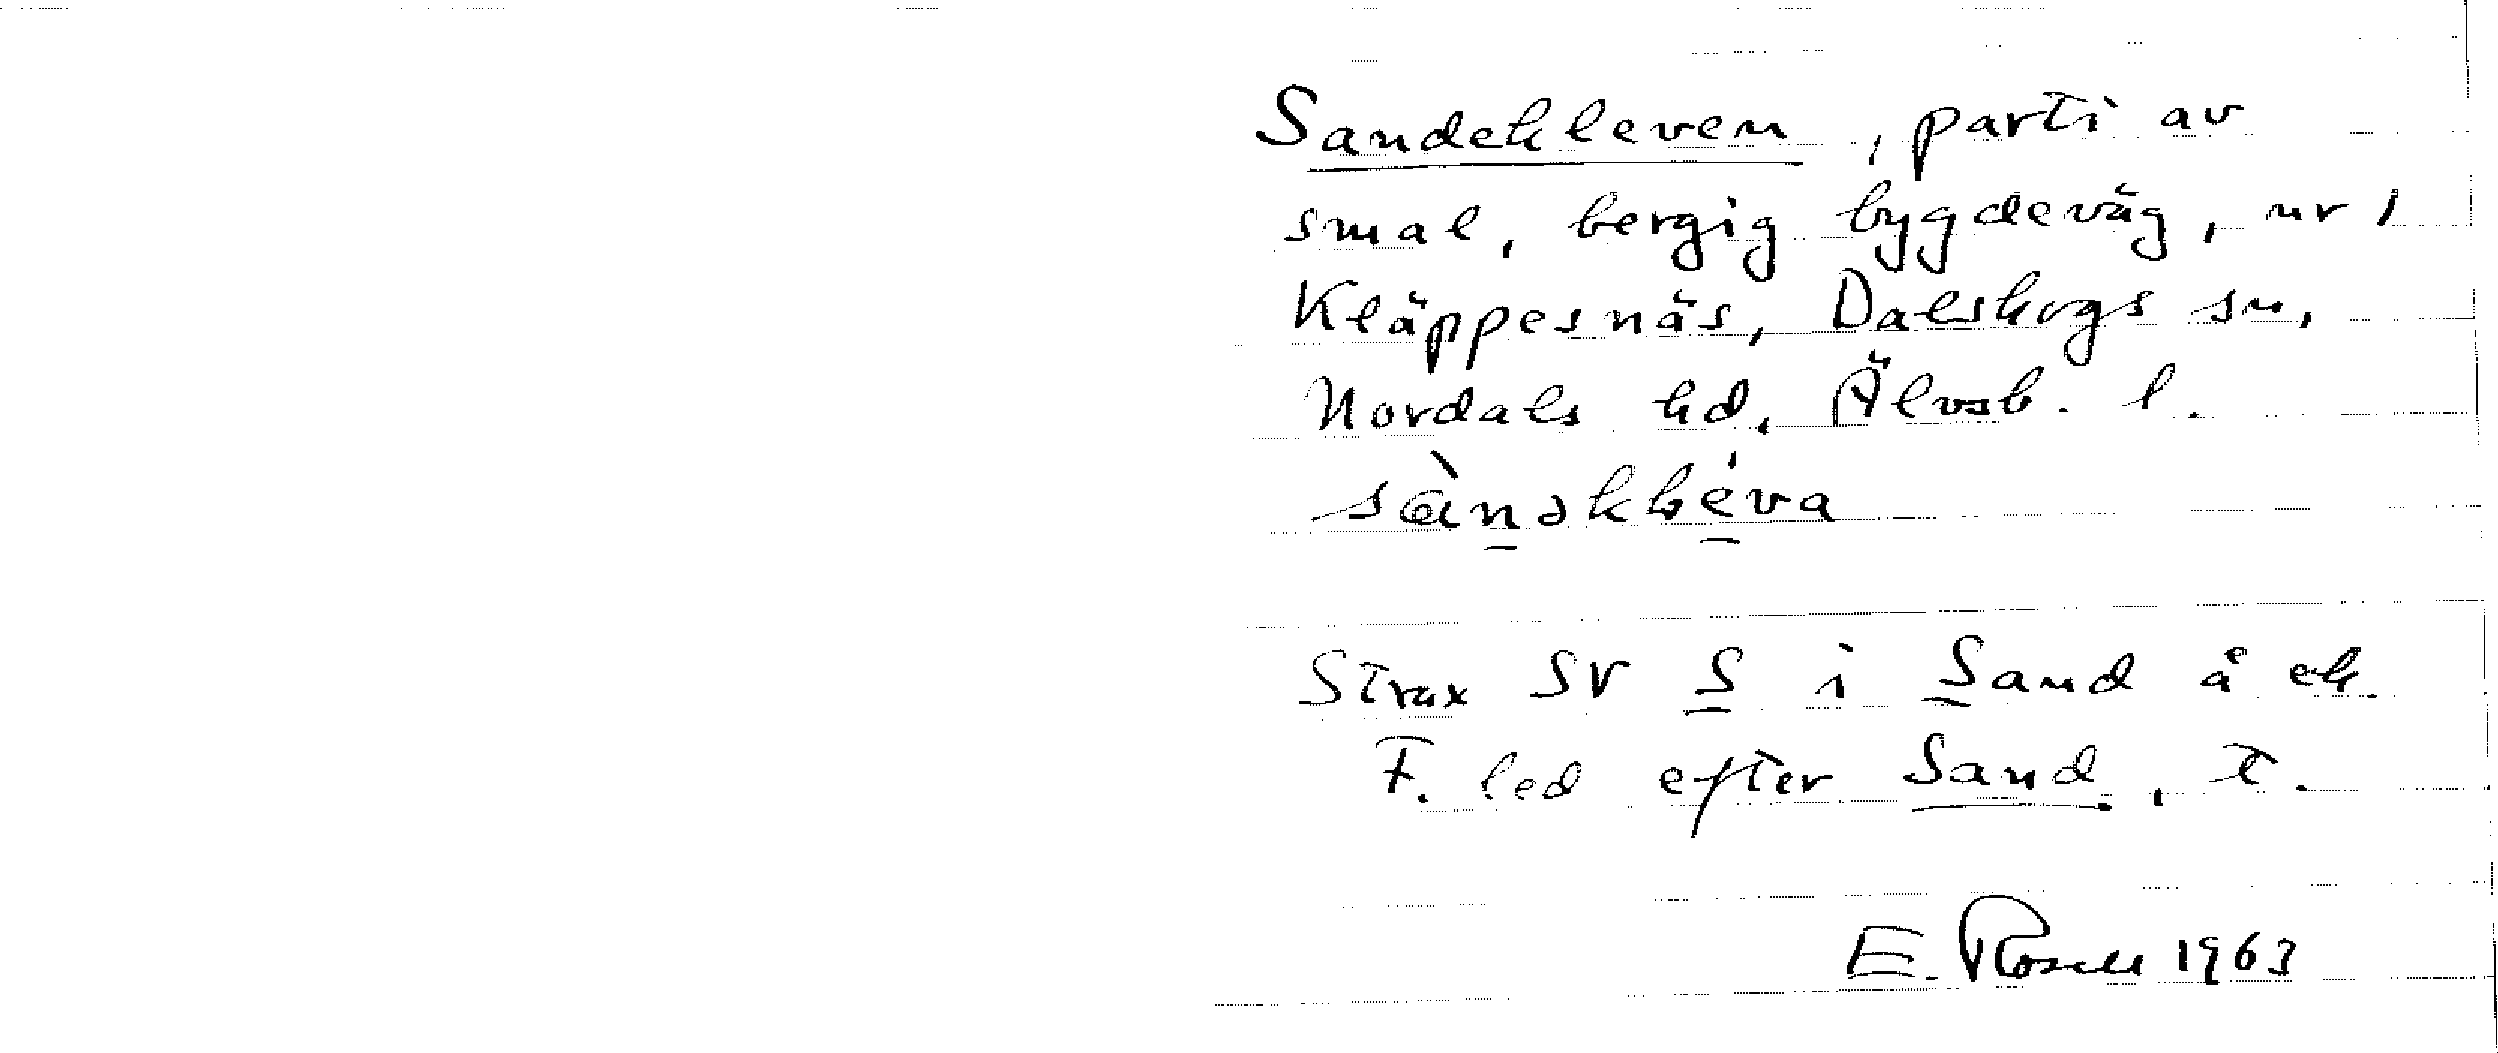 Sandekleven, parti av
smal, bergig bygdeväg, nr 1
Kläppesnäs, Dalskogs sn,
Nordals hd, Älvsb. l.
Strax SV S i Sand å ek.
F. led efter Sand, t.
E. Rosell 1963